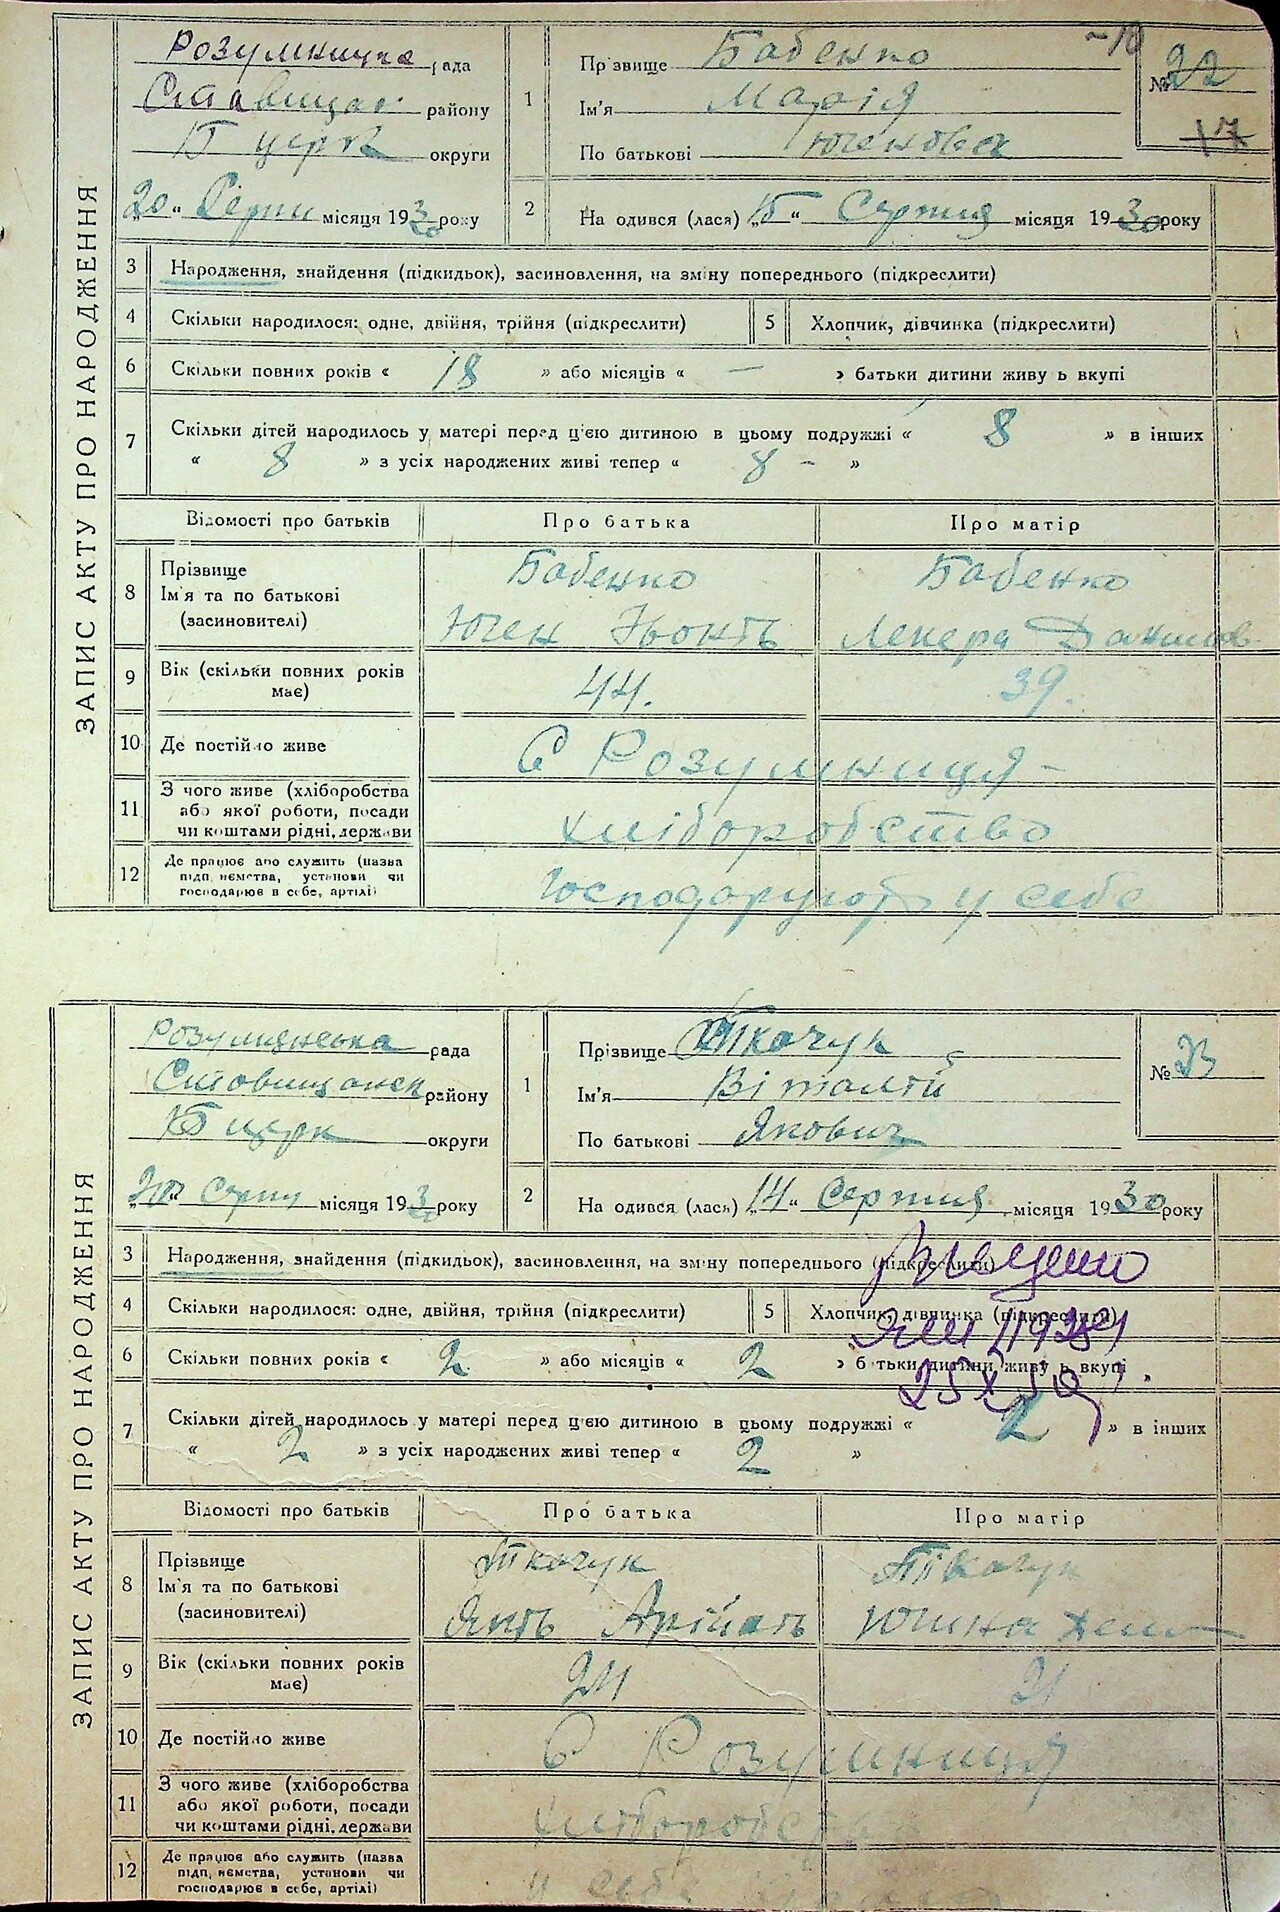 ЗАПИС АКТУ ПРО НАРОДЖЕННЯ
Розумницка рада
Ставищан. району
Б церк округи
„20“ Серпн місяця 1930 року
1
Прізвище Бабенко
Ім'я Марія
По батькові Югеновна
~10
№ 22
17
2 На одився (лася) „15“ Серпня місяця 1930 року
3 Народження, знайдення (підкидьок), засиновлення, на зміну попереднього (підкреслити)
4 Скільки народилося: одне, двійня, трійня (підкреслити) 5 Хлопчик, дівчинка (підкреслити)
6 Скільки повних років « 18 » або місяців « — » батьки дитини живу ь вкупі
7 Скільки дітей народилось у матері перед ц'єю дитиною в цьому подружжі « 8 » в інших
« 8 » з усіх народжених живі тепер « 8 - »
Відомості про батьків Про батька Про матір
8 Прізвище Бабенко Бабенко
Ім'я та по батькові
(засиновителі) Юген
9 Вік (скільки повних років має) 44. 39.
10 Де постійно живе С Розумниця -
11 З чого живе (хліборобства
або якої роботи, посади
чи коштами рідні, держави хліборобство
12 Де працює або служить (назва
підп иємства, установи чи
господарює в себе, артілі) Господарують у себе
ЗАПИС АКТУ ПРО НАРОДЖЕННЯ
Розумицнська рада
Ставищанск району
Б церк округи
„20“ Серпн місяця 1930 року
1
Прізвище Ткачук
Ім'я Віталій
По батькові Якович
№ 23
2 На одився (лась) „14“ Серпня місяця 1930 року
3 Народження, знайдення (підкидьок), засиновлення, на зміну попереднього (підкреслити)
4 Скільки народилося: одне, двійня, трійня (підкреслити) 5 Хлопчик, дівчинка (підкреслити)
6 Скільки повних років « 2 » або місяців « 2 » б тьки дитини живу ь вкупі
7 Скільки дітей народилось у матері перед ц'єю дитиною в цьому подружжі « 2 » в інших
« 2 » з усіх народжених живі тепер « 2 »
Відомості про батьків Про батька Про матір
8 Прізвище Ткачук Ткачук
Ім'я та по батькові
(засиновителі)
9 Вік (скільки повних років має) 24 21
10 Де постійно живе С Розумниця
11 З чого живе (хліборобства
або якої роботи, посади
чи коштами рідні, держави хліборобство
12 Де працює або служить (назва
підп иємства, установи чи
господарює в себе, артілі) у себе